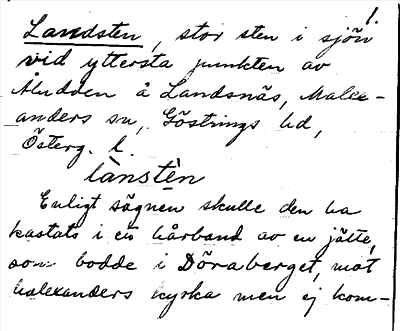 1.
Landsten, stor sten i sjön
vid yttersta punkten av
Åludden å Landsnäs, Malex-
anders sn, Göstrings hd,
Österg. l.
lànstèn
Enligt sägnen skulle den ha
kastats i ett hårband av en jätte,
som bodde i Döraberget, mot
Malexanders kyrka men ej kom-